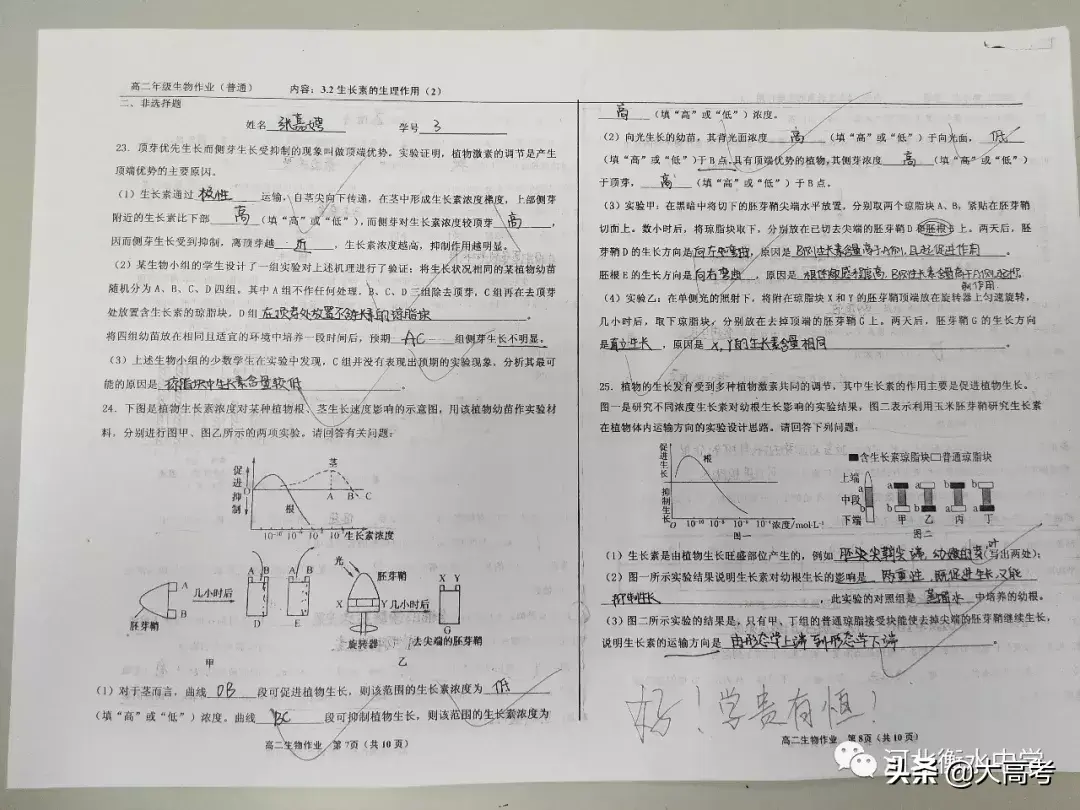 高二年级生物作业（普通） 内容：3.2 生长素的生理作用（2）
二、非选择题
姓名 张嘉娉 学号 3
23．顶芽优先生长而侧芽生长受抑制的现象叫做顶端优势。实验证明，植物激素的调节是产生
顶端优势的主要原因。
（1）生长素通过 极性 运输，自茎尖向下传递，在茎中形成生长素浓度梯度，上部侧芽
附近的生长素比下部 高 （填“高”或“低”），而侧芽对生长素浓度较顶芽 高 ，
因而侧芽生长受到抑制，离顶芽越 近 ，生长素浓度越高，抑制作用越明显。
（2）某生物小组的学生设计了一组实验对上述机理进行了验证：将生长状况相同的某植物幼苗
随机分为 A、B、C、D 四组。其中 A 组不作任何处理。B、C、D 三组除去顶芽，C 组再在去顶芽
处放置含生长素的琼脂块，D 组 在顶芽处放置不含生长素的琼脂块 。
将四组幼苗放在相同且适宜的环境中培养一段时间后，预期 AC 组侧芽生长不明显。
（3）上述生物小组的少数学生在实验中发现，C 组并没有表现出预期的实验现象，分析其最可
能的原因是 琼脂块中生长素含量较低 。
24．下图是植物生长素浓度对某种植物根、茎生长速度影响的示意图，用该植物幼苗作实验材
料，分别进行图甲、图乙所示的两项实验。请回答有关问题：
促进 O 抑制 茎 根 A B C
生长素浓度
胚芽鞘 A B 几小时后 A B D A B E
甲
光 胚芽鞘 X Y 几小时后 旋转器 X Y G 去尖端的胚芽鞘
乙
（1）对于茎而言，曲线 OB 段可促进植物生长，则该范围的生长素浓度为 低
（填“高”或“低”）浓度。曲线 BC 段可抑制植物生长，则该范围的生长素浓度为
高二生物作业 第 7页（共 10 页）
高 （填“高”或“低”）浓度。
（2）向光生长的幼苗，其背光面浓度 高 （填“高”或“低”）于向光面， 低
（填“高”或“低”）于 B 点。具有顶端优势的植物，其侧芽浓度 高 （填“高”或“低”）
于顶芽， 高 （填“高”或“低”）于 B 点。
（3）实验甲：在黑暗中将切下的胚芽鞘尖端水平放置，分别取两个琼脂块 A、B，紧贴在胚芽鞘
切面上。数小时后，将琼脂块取下，分别放在已切去尖端的胚芽鞘 D 和胚根 E 上。两天后，胚
芽鞘 D 的生长方向是 向左弯曲 ，原因是 B侧生长素含量高于A侧,且起促进作用
胚根 E 的生长方向是 向右弯曲 ，原因是 根的敏感性高,B侧生长素含量高于A侧,起抑
制作用.
（4）实验乙：在单侧光的照射下，将附在琼脂块 X 和 Y 的胚芽鞘顶端放在旋转器上匀速旋转，
几小时后，取下琼脂块，分别放在去掉顶端的胚芽鞘 G 上。两天后，胚芽鞘 G 的生长方向
是 直立生长 ，原因是 X,Y的生长素含量相同 。
25．植物的生长发育受到多种植物激素共同的调节，其中生长素的作用主要是促进植物生长。
图一是研究不同浓度生长素对幼根生长影响的实验结果，图二表示利用玉米胚芽鞘研究生长素
在植物体内运输方向的实验设计思路。请回答下列问题：
促进生长 抑制生长 根 O 浓度/mol·L⁻¹
图一
■含生长素琼脂块□普通琼脂块
上端 中段 下端 a b 甲 乙 丙 丁
图二
（1）生长素是由植物生长旺盛部位产生的，例如 胚芽尖鞘尖端,幼嫩的芽,叶（写出两处）；
（2）图一所示实验结果说明生长素对幼根生长的影响是 两重性,既促进生长,又能
抑制生长 ，此实验的对照组是 蒸馏水 中培养的幼根。
（3）图二所示实验的结果是，只有甲、丁组的普通琼脂接受块能使去掉尖端的胚芽鞘继续生长，
说明生长素的运输方向是 由形态学上端到形态学下端 。
好！学贵有恒！
高二生物作业 第 8页（共 10 页）
河北衡水中学
头条 @大高考